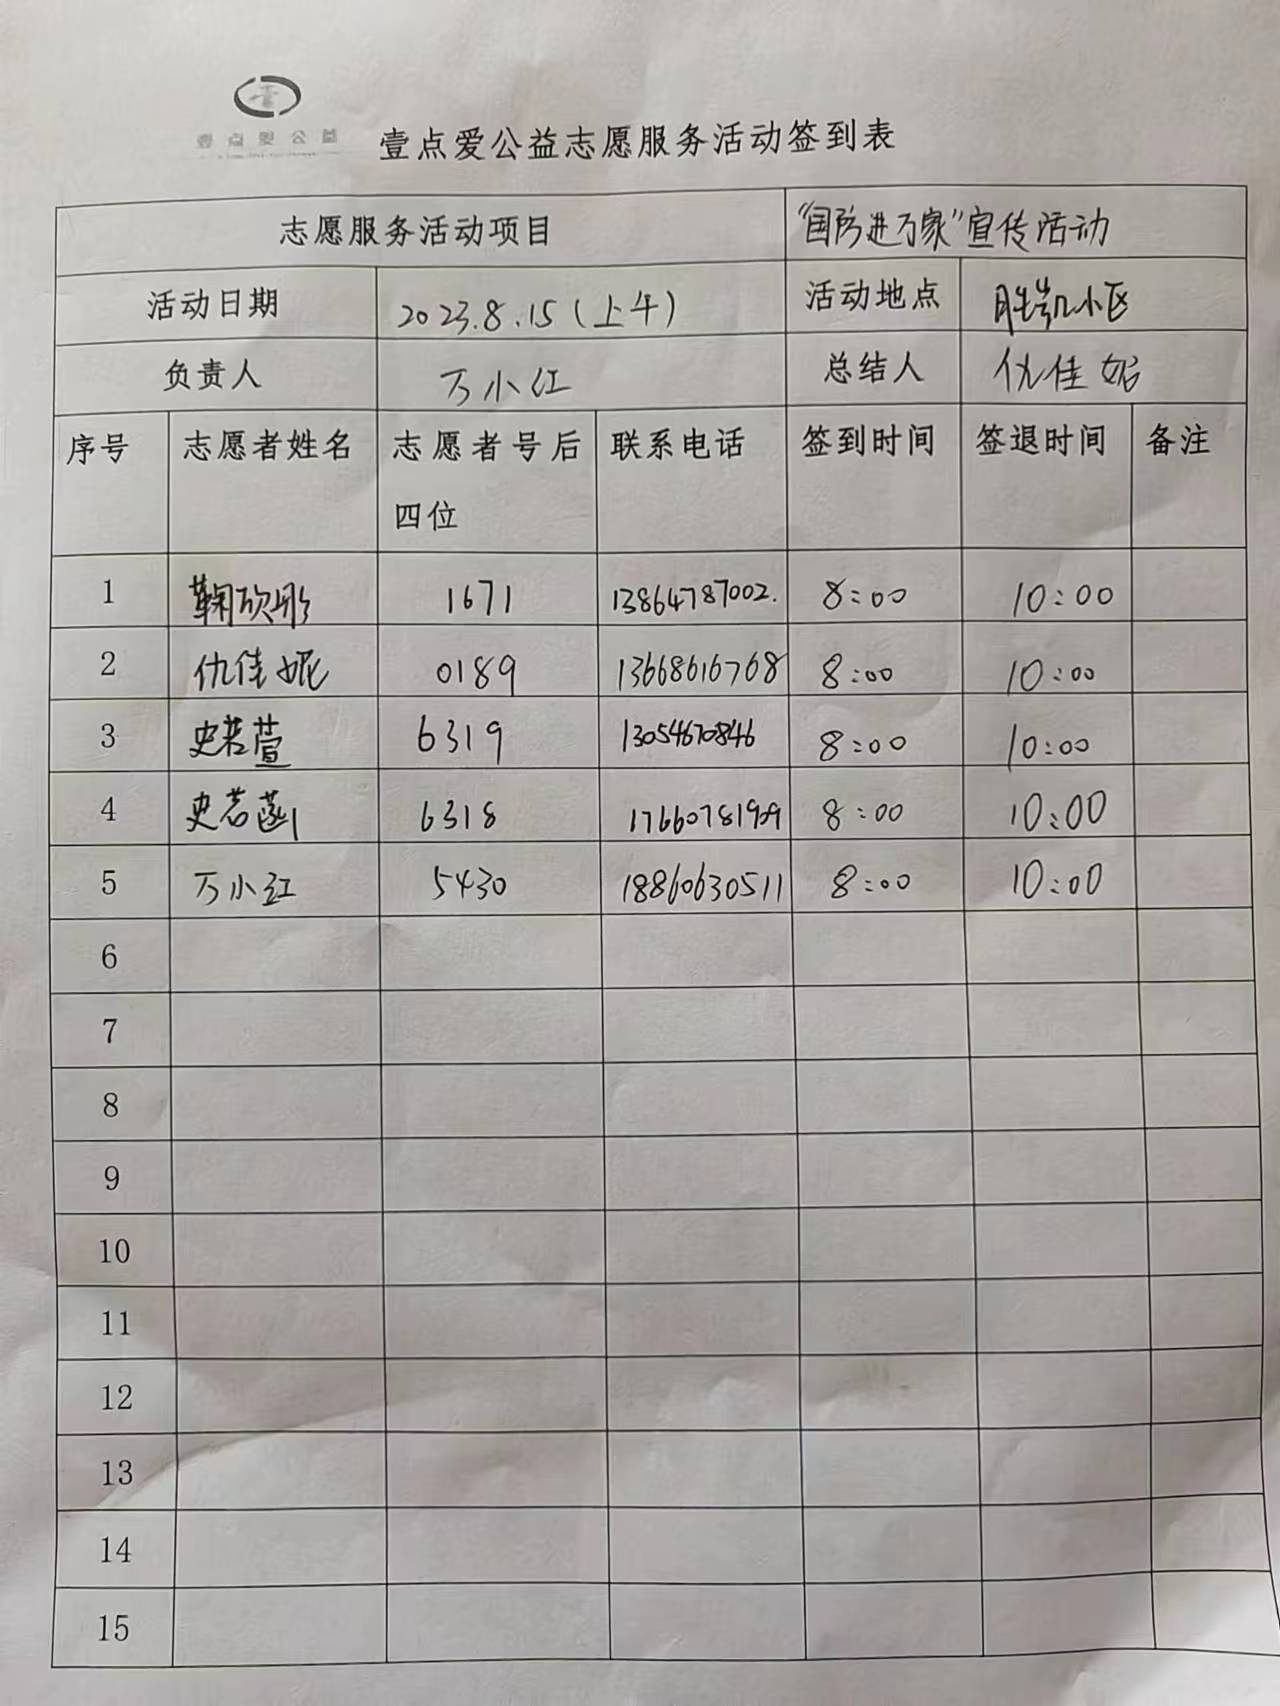 壹点爱公益
壹点爱公益志愿服务活动签到表
志愿服务活动项目 “国防进万家”宣传活动
活动日期 2023.8.15(上午) 活动地点 胜凯小区
负责人 万小红 总结人 仇佳妮
序号 志愿者姓名 志愿者号后 联系电话 签到时间 签退时间 备注
四位
1 鞠欣彤 1671 13864787002. 8:00 10:00
2 仇佳妮 0189 13668616768 8:00 10:00
3 史若萱 6319 13054670846 8:00 10:00
4 史若菡 6318 17660781909 8:00 10:00
5 万小红 5430 18860630511 8:00 10:00
6
7
8
9
10
11
12
13
14
15